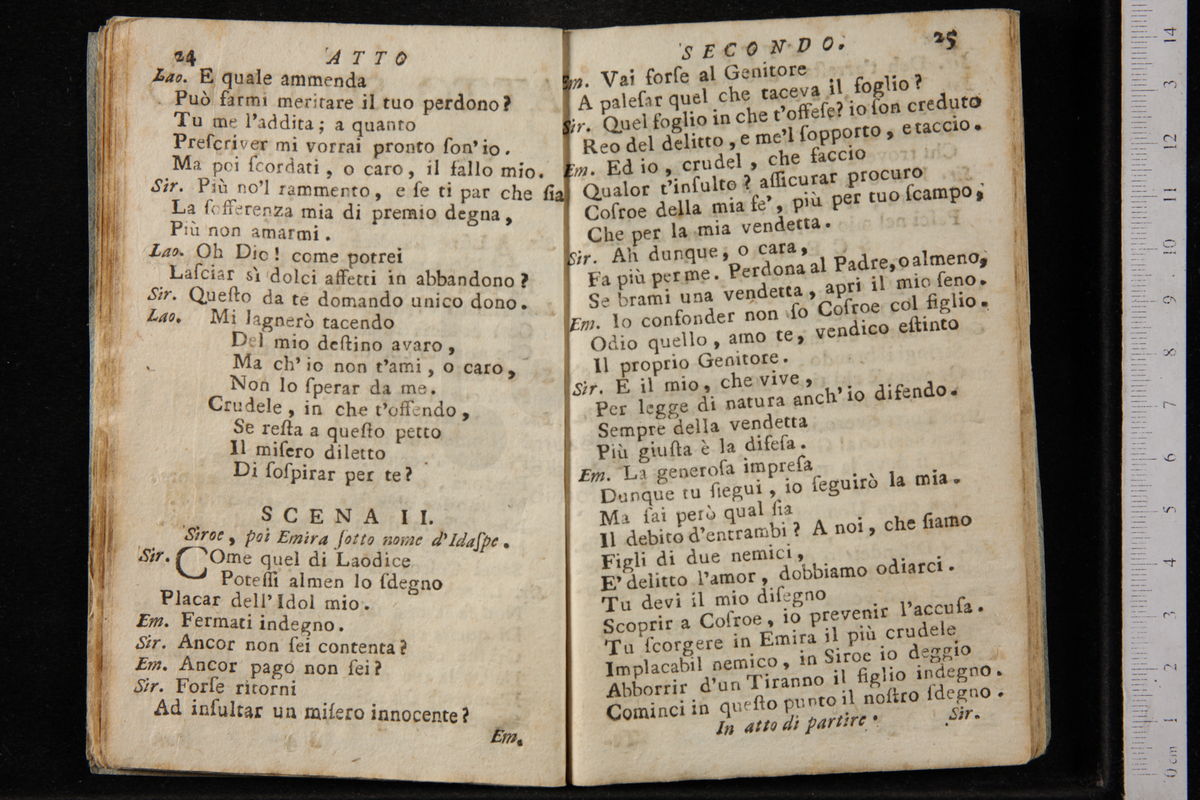 24 ATTO
Lao. E quale ammenda
Può farmi meritare il tuo perdono?
Tu me l'addita; a quanto
Preſcriver mi vorrai pronto ſon' io.
Ma poi ſcordati, o caro, il fallo mio.
Sir. Più no'l rammento, e ſe ti par che ſia
La ſofferenza mia di premio degna,
Più non amarmi.
Lao. Oh Dio! come potrei
Laſciar sì dolci affetti in abbandono?
Sir. Queſto da te domando unico dono.
Lao. Mi lagnerò tacendo
Del mio deſtino avaro,
Ma ch' io non t'ami, o caro,
Non lo ſperar da me.
Crudele, in che t'offendo,
Se reſta a queſto petto
Il miſero diletto
Di ſoſpirar per te?
SCENA II.
Siroe, poi Emira ſotto nome d'Idaſpe.
Sir. COme quel di Laodice
Poteſſi almen lo ſdegno
Placar dell' Idol mio.
Em. Fermati indegno.
Sir. Ancor non ſei contenta?
Em. Ancor pago non ſei?
Sir. Forſe ritorni
Ad inſultar un miſero innocente?
Em.
SECONDO. 25
Em. Vai forſe al Genitore
A paleſar quel che taceva il foglio?
Sir. Quel foglio in che t'offeſe? io ſon creduto
Reo del delitto, e me'l ſopporto, e taccio.
Em. Ed io, crudel, che faccio
Qualor t'inſulto? aſſicurar procuro
Coſroe della mia fe', più per tuo ſcampo,
Che per la mia vendetta.
Sir. Ah dunque, o cara,
Fa più per me. Perdona al Padre, o almeno,
Se brami una vendetta, apri il mio ſeno.
Em. Io confonder non ſo Coſroe col figlio.
Odio quello, amo te, vendico eſtinto
Il proprio Genitore.
Sir. E il mio, che vive,
Per legge di natura anch' io difendo.
Sempre della vendetta
Più giuſta è la difeſa.
Em. La generoſa impreſa
Dunque tu ſiegui, io ſeguirò la mia.
Ma ſai però qual ſia
Il debito d'entrambi? A noi, che ſiamo
Figli di due nemici,
E' delitto l'amor, dobbiamo odiarci.
Tu devi il mio diſegno
Scoprir a Coſroe, io prevenir l'accuſa.
Tu ſcorgere in Emira il più crudele
Implacabil nemico, in Siroe io deggio
Abborrir d'un Tiranno il figlio indegno.
Cominci in queſto punto il noſtro ſdegno.
In atto di partire. Sir.
0 cm 1 2 3 4 5 6 7 8 9 10 11 12 13 14